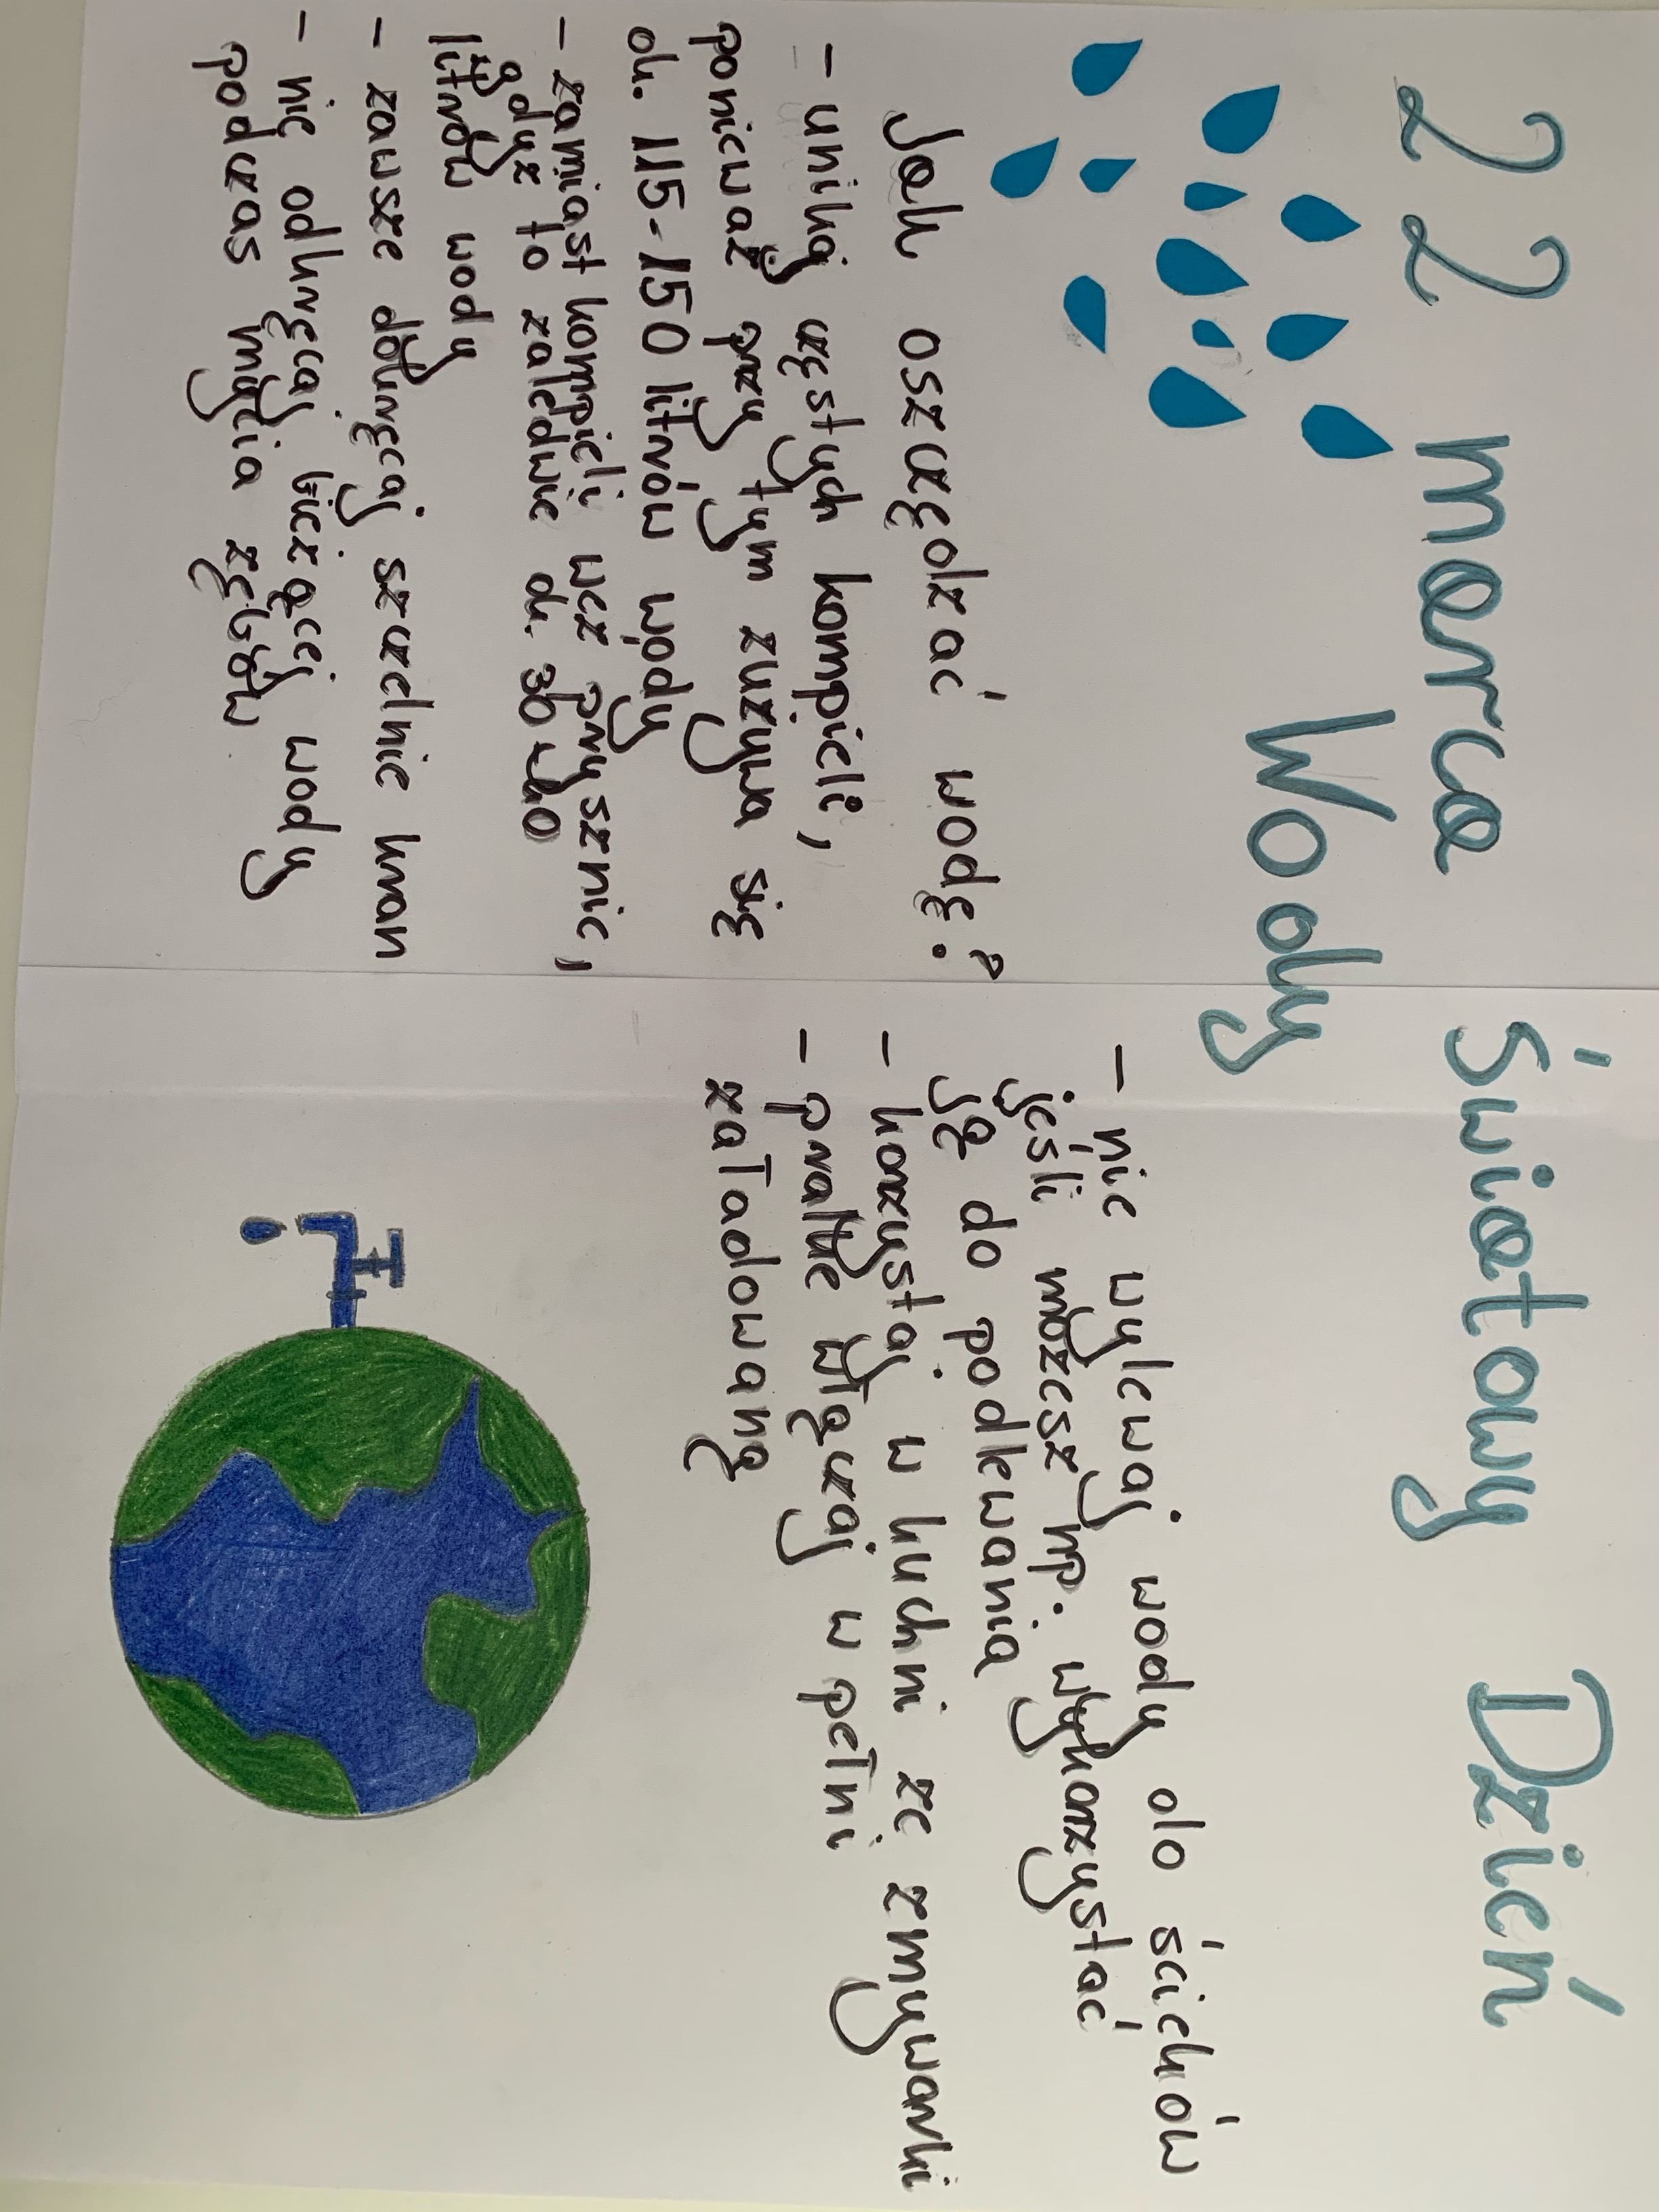 22 marca Światowy Dzień
Wody
Jak oszczędzać wodę?
- unikaj częstych kompieli,
ponieważ przy tym zużywa się
ok. 115-150 litrów wody
- zamiast kompieli weź prysznic,
gdyż to zaledwie ok. 30-40
litrów wody
- zawsze dokręcaj szczelnie kran
- nie odkręcaj bieżącej wody
podczas mycia zębów
- nie wylewaj wody do ścieków
jeśli możesz np. wykorzystać
ją do podlewania
- korzystaj w kuchni ze zmywarki
- pralkę włączaj w pełni
załadowaną